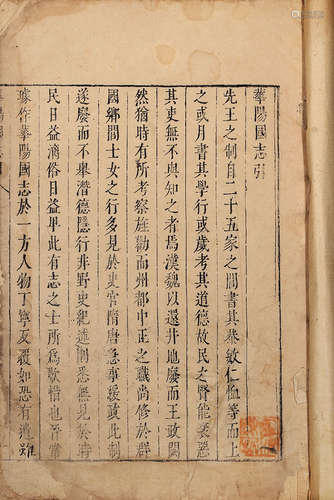 華陽國志引
先王之制自二十五家之閭書其恭敏仁恤等而上
之或月書其學行或歲考其道德故民之賢能衺惡
其吏無不與知之者焉漢魏以還井地廢而王政闕
然猶時有所考察旌勸而州都中正之職尚修於群
國鄉閭士女之行多見於史官隋唐急事緩政此制
遂廢而不舉潛德隱行非野史紀述則悉無見於時
民日益漓俗日益卑此有志之士所為歎惜也晉常
璩作華陽國志於一方人物丁寧反覆如恐有遺雖